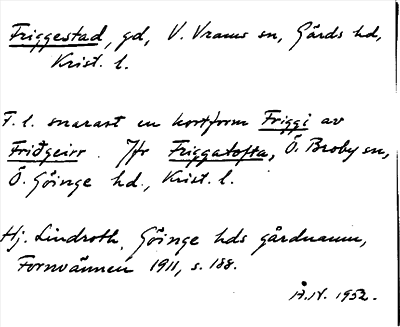 Friggestad, gd, V. Vrams sn, Gärds hd,
Krist. l.
F. l. snarast en kortform Friggi av
Friðgeirr. Jfr Friggatofta, Ö. Broby sn,
Ö. Göinge hd., Krist. l.
Hj. Lindroth, Göinge hds gårdnamn,
Fornvännen 1911, s. 188.
Å.N. 1952.